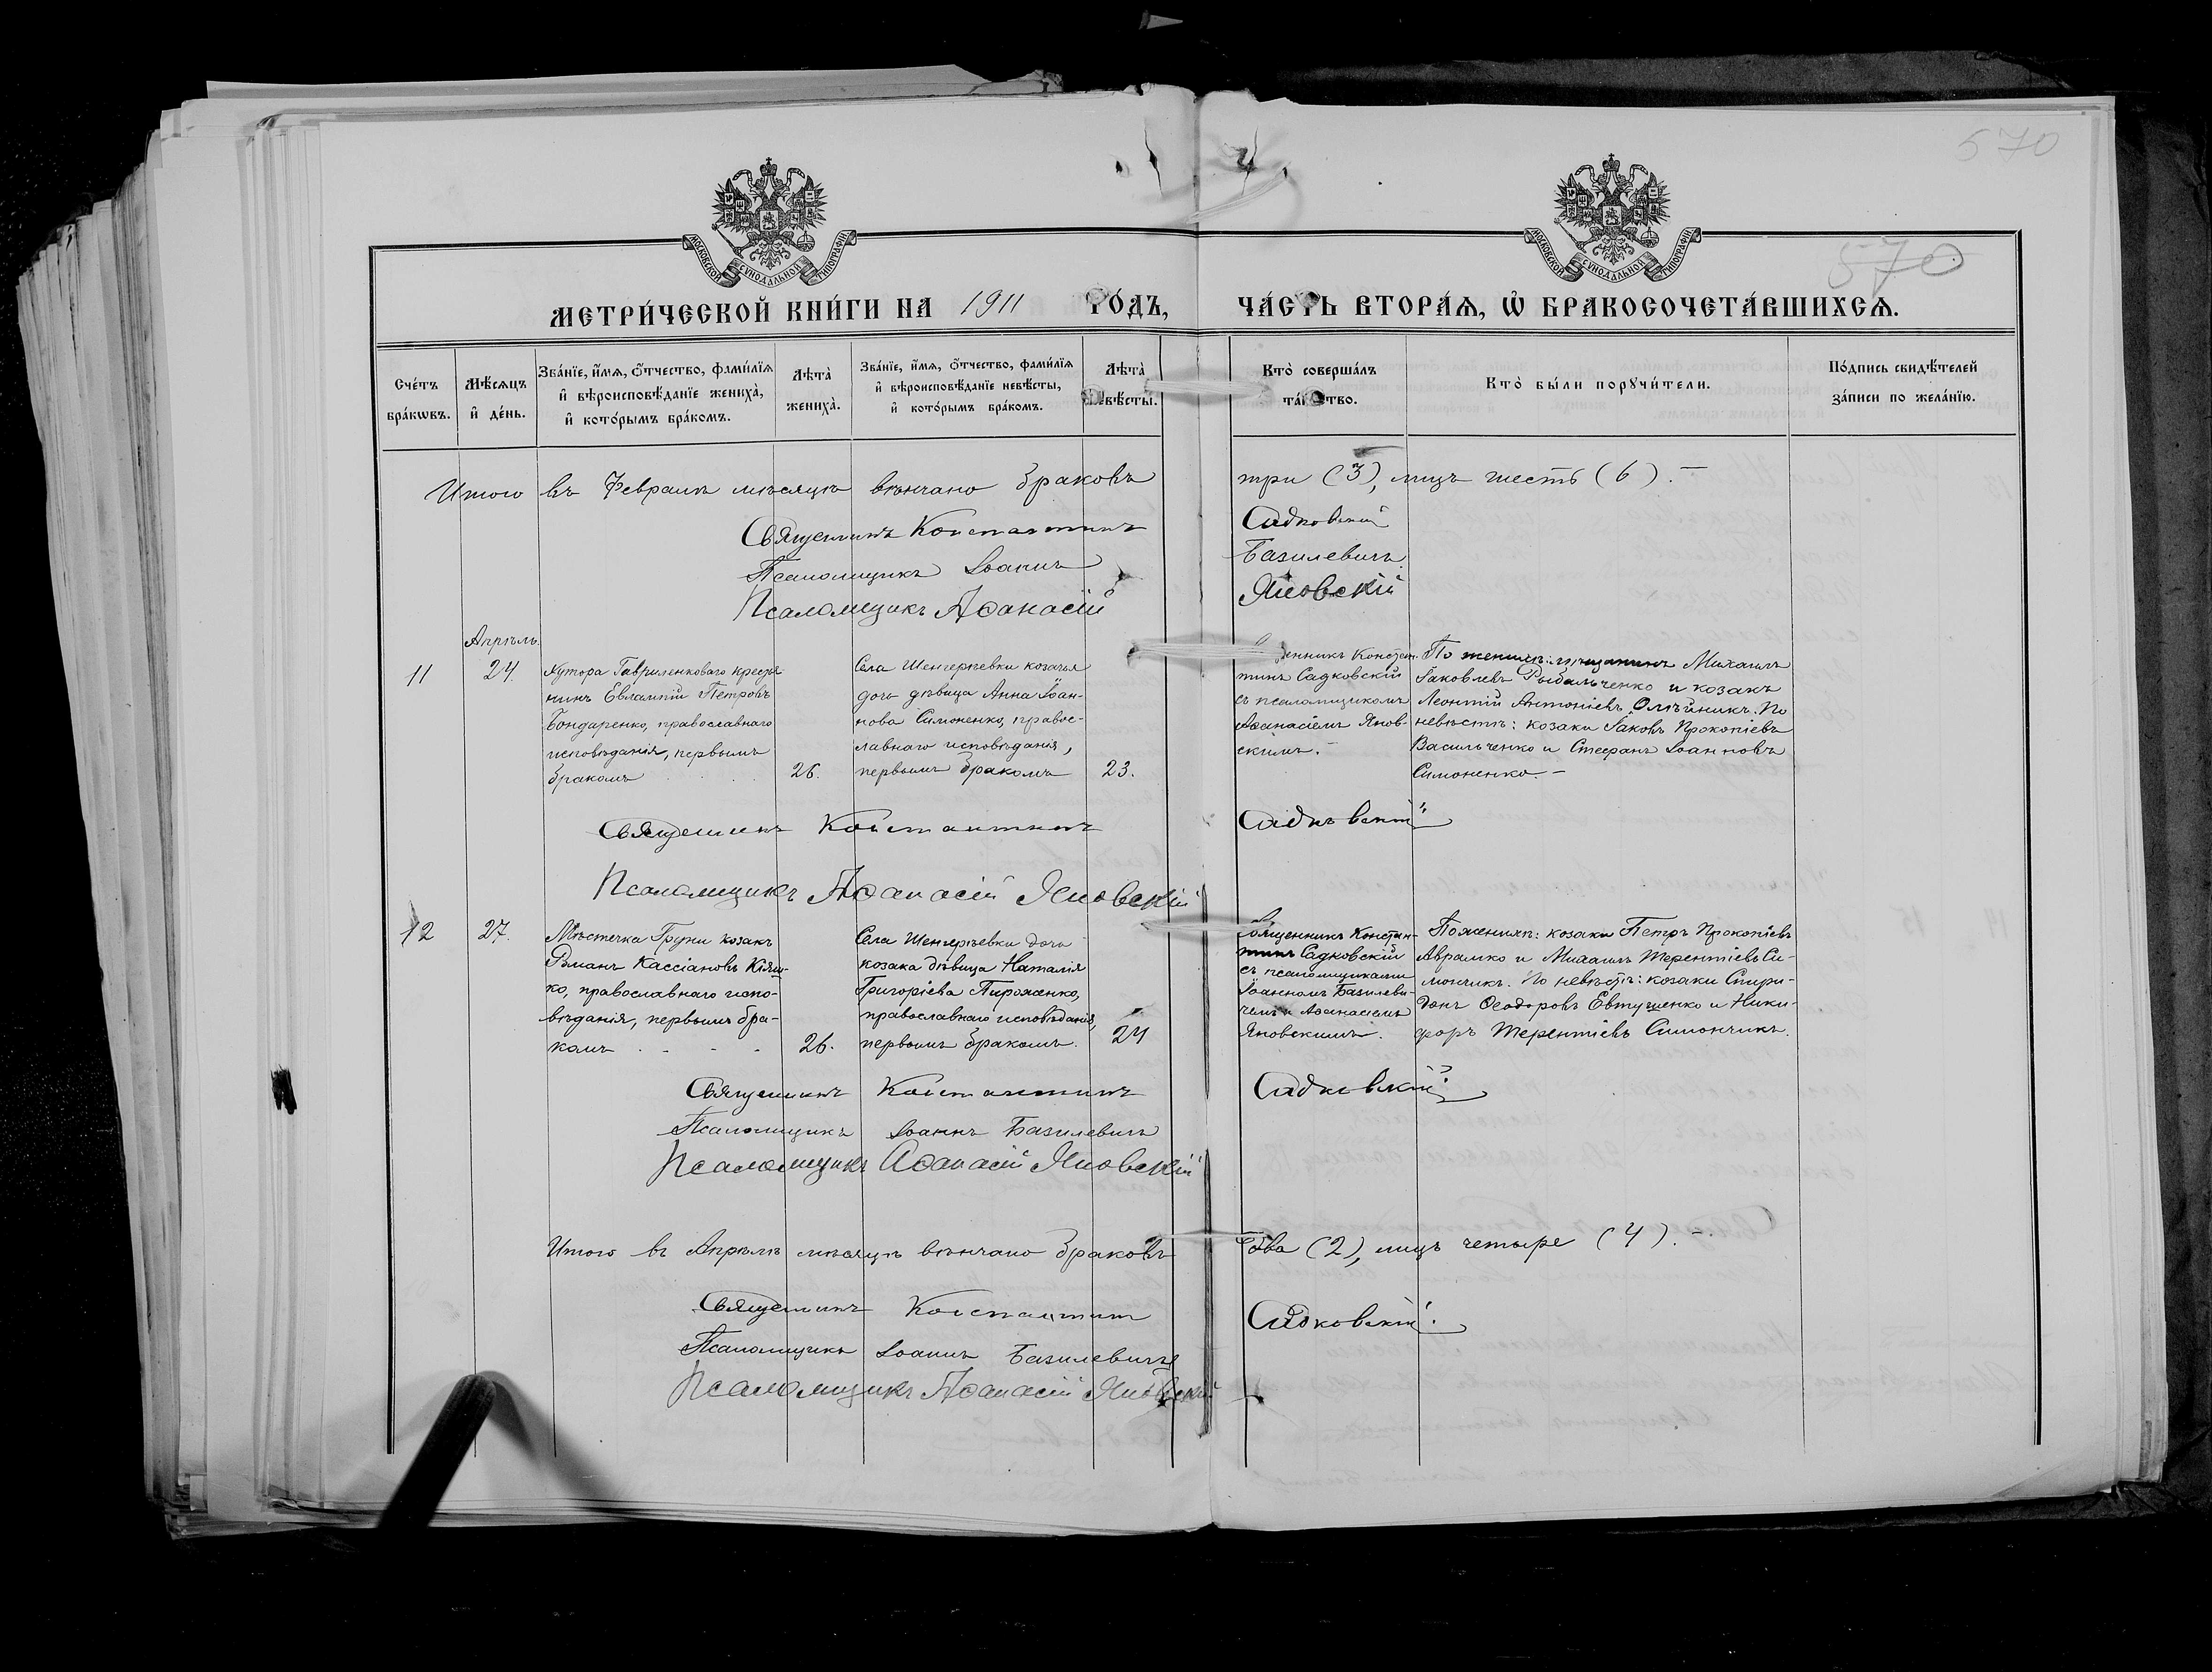 570
МОСКОВСКОЙ СѴНОДАЛЬНОЙ ТИПОГРАФІИ
МОСКОВСКОЙ СѴНОДАЛЬНОЙ ТИПОГРАФІИ
570
МЕТРИ́ЧЕСКОЙ КНИ́ГИ НА 1911 ГО́ДЪ,
ЧА́СТЬ ВТОРА́Ѧ, Ѡ҆ БРАКОСОЧЕТА́ВШИХСѦ.
Сче́тъ бра́кѡвъ.
Мѣ́сѧцъ и҆ де́нь.
Зва́нїе, и҆́мѧ, ѻ҆́тчество, фами́лїѧ
и҆ вѣроисповѣ́данїе жениха̀,
и҆ кото́рымъ бра́комъ.
Лѣта̀ жениха̀.
Зва́нїе, и҆́мѧ, ѻ҆́тчество, фами́лїѧ
и҆ вѣроисповѣ́данїе невѣ́сты,
и҆ кото́рымъ бра́комъ.
Лѣта̀ невѣ́сты.
Кто̀ соверша́лъ
та́инство.
Кто̀ бы́ли порꙋчи́тели.
По́дпись свидѣ́телей
за́писи по жела́нїю.
Итого въ Февралѣ мѣсяцѣ вѣнчано браковъ
три (3), лицъ шесть (6). —
Священникъ Константинъ
Садковскій
Псаломщикъ Іоаннъ
Базилевичъ
Псаломщикъ Аѳанасій
Яновскій
Апрѣль.
11
24.
Хутора Гавриленковаго крестья-
нинъ Евлампій Петровъ
Бондаренко, православнаго
исповѣданія, первымъ
бракомъ
26.
Села Шенгерѣевки козачья
дочь дѣвица Анна Іоан-
нова Симоненко, правос-
лавнаго исповѣданія,
первымъ бракомъ
23.
енникъ Констан-
тинъ Садковскій
съ псаломщикомъ
Аѳанасіемъ Янов-
скимъ. —
По женихѣ: мѣщанинъ Михаилъ
Іаковлевъ Рыбальченко и козакъ
Леонтій Антоніевъ Олѣйникъ. По
невѣстѣ: козаки Іаковъ Прокопіевъ
Васильченко и Стефанъ Іоанновъ
Симоненко. —
Священникъ Константинъ
Садковскій
Псаломщикъ Аѳанасій Яновскій
12
27.
Мѣстечка Груни козакъ
Романъ Кассіановъ Кіяш-
ко, православнаго испо-
вѣданія, первымъ бра-
комъ
26.
Села Шенгерѣевки дочь
козака дѣвица Наталія
Григоріева Пироженко,
православнаго исповѣданія,
первымъ бракомъ.
24
Священникъ Констан-
тинъ Садковскій
съ псаломщиками
Іоанномъ Базилеви-
чемъ и Аѳанасіемъ
Яновскимъ.
По женихѣ: козаки Петръ Прокопіевъ
Аврамко и Михаилъ Терентіевъ Си-
мончикъ. По невѣстѣ: козаки Спири-
донъ Ѳеодоровъ Евтушенко и Ники-
форъ Терентіевъ Симончикъ.
Священникъ Константинъ
Садковскій
Псаломщикъ Іоаннъ Базилевичъ
Псаломщикъ Аѳанасій Яновскій
Итого въ Апрѣлѣ мѣсяцѣ вѣнчано браковъ
два (2), лицъ четыре (4). —
Священникъ Константинъ
Садковскій
Псаломщикъ Іоаннъ Базилевичъ
Псаломщикъ Аѳанасій Яновскій